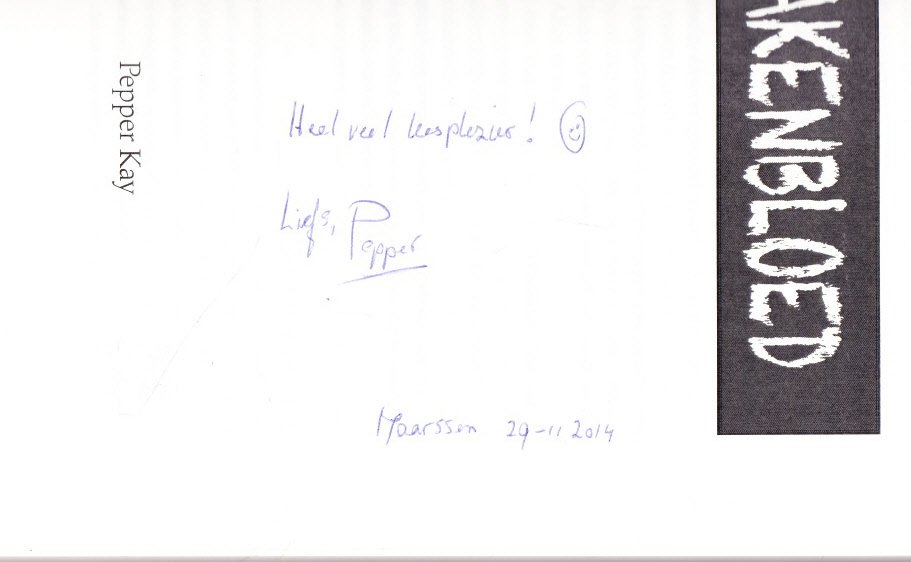 AKENBLOED
Pepper Kay
Heel veel leesplezier!
Liefs, Pepper
Maarssen 29-11 2014